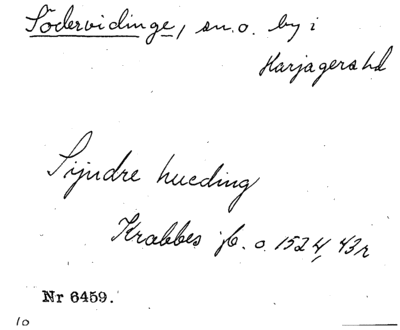 Södervidinge, sn. o. by i
Harjagers hd
Sijndre hueding
Krabbes jb. o. 1524, 43r
Nr 6459.
10